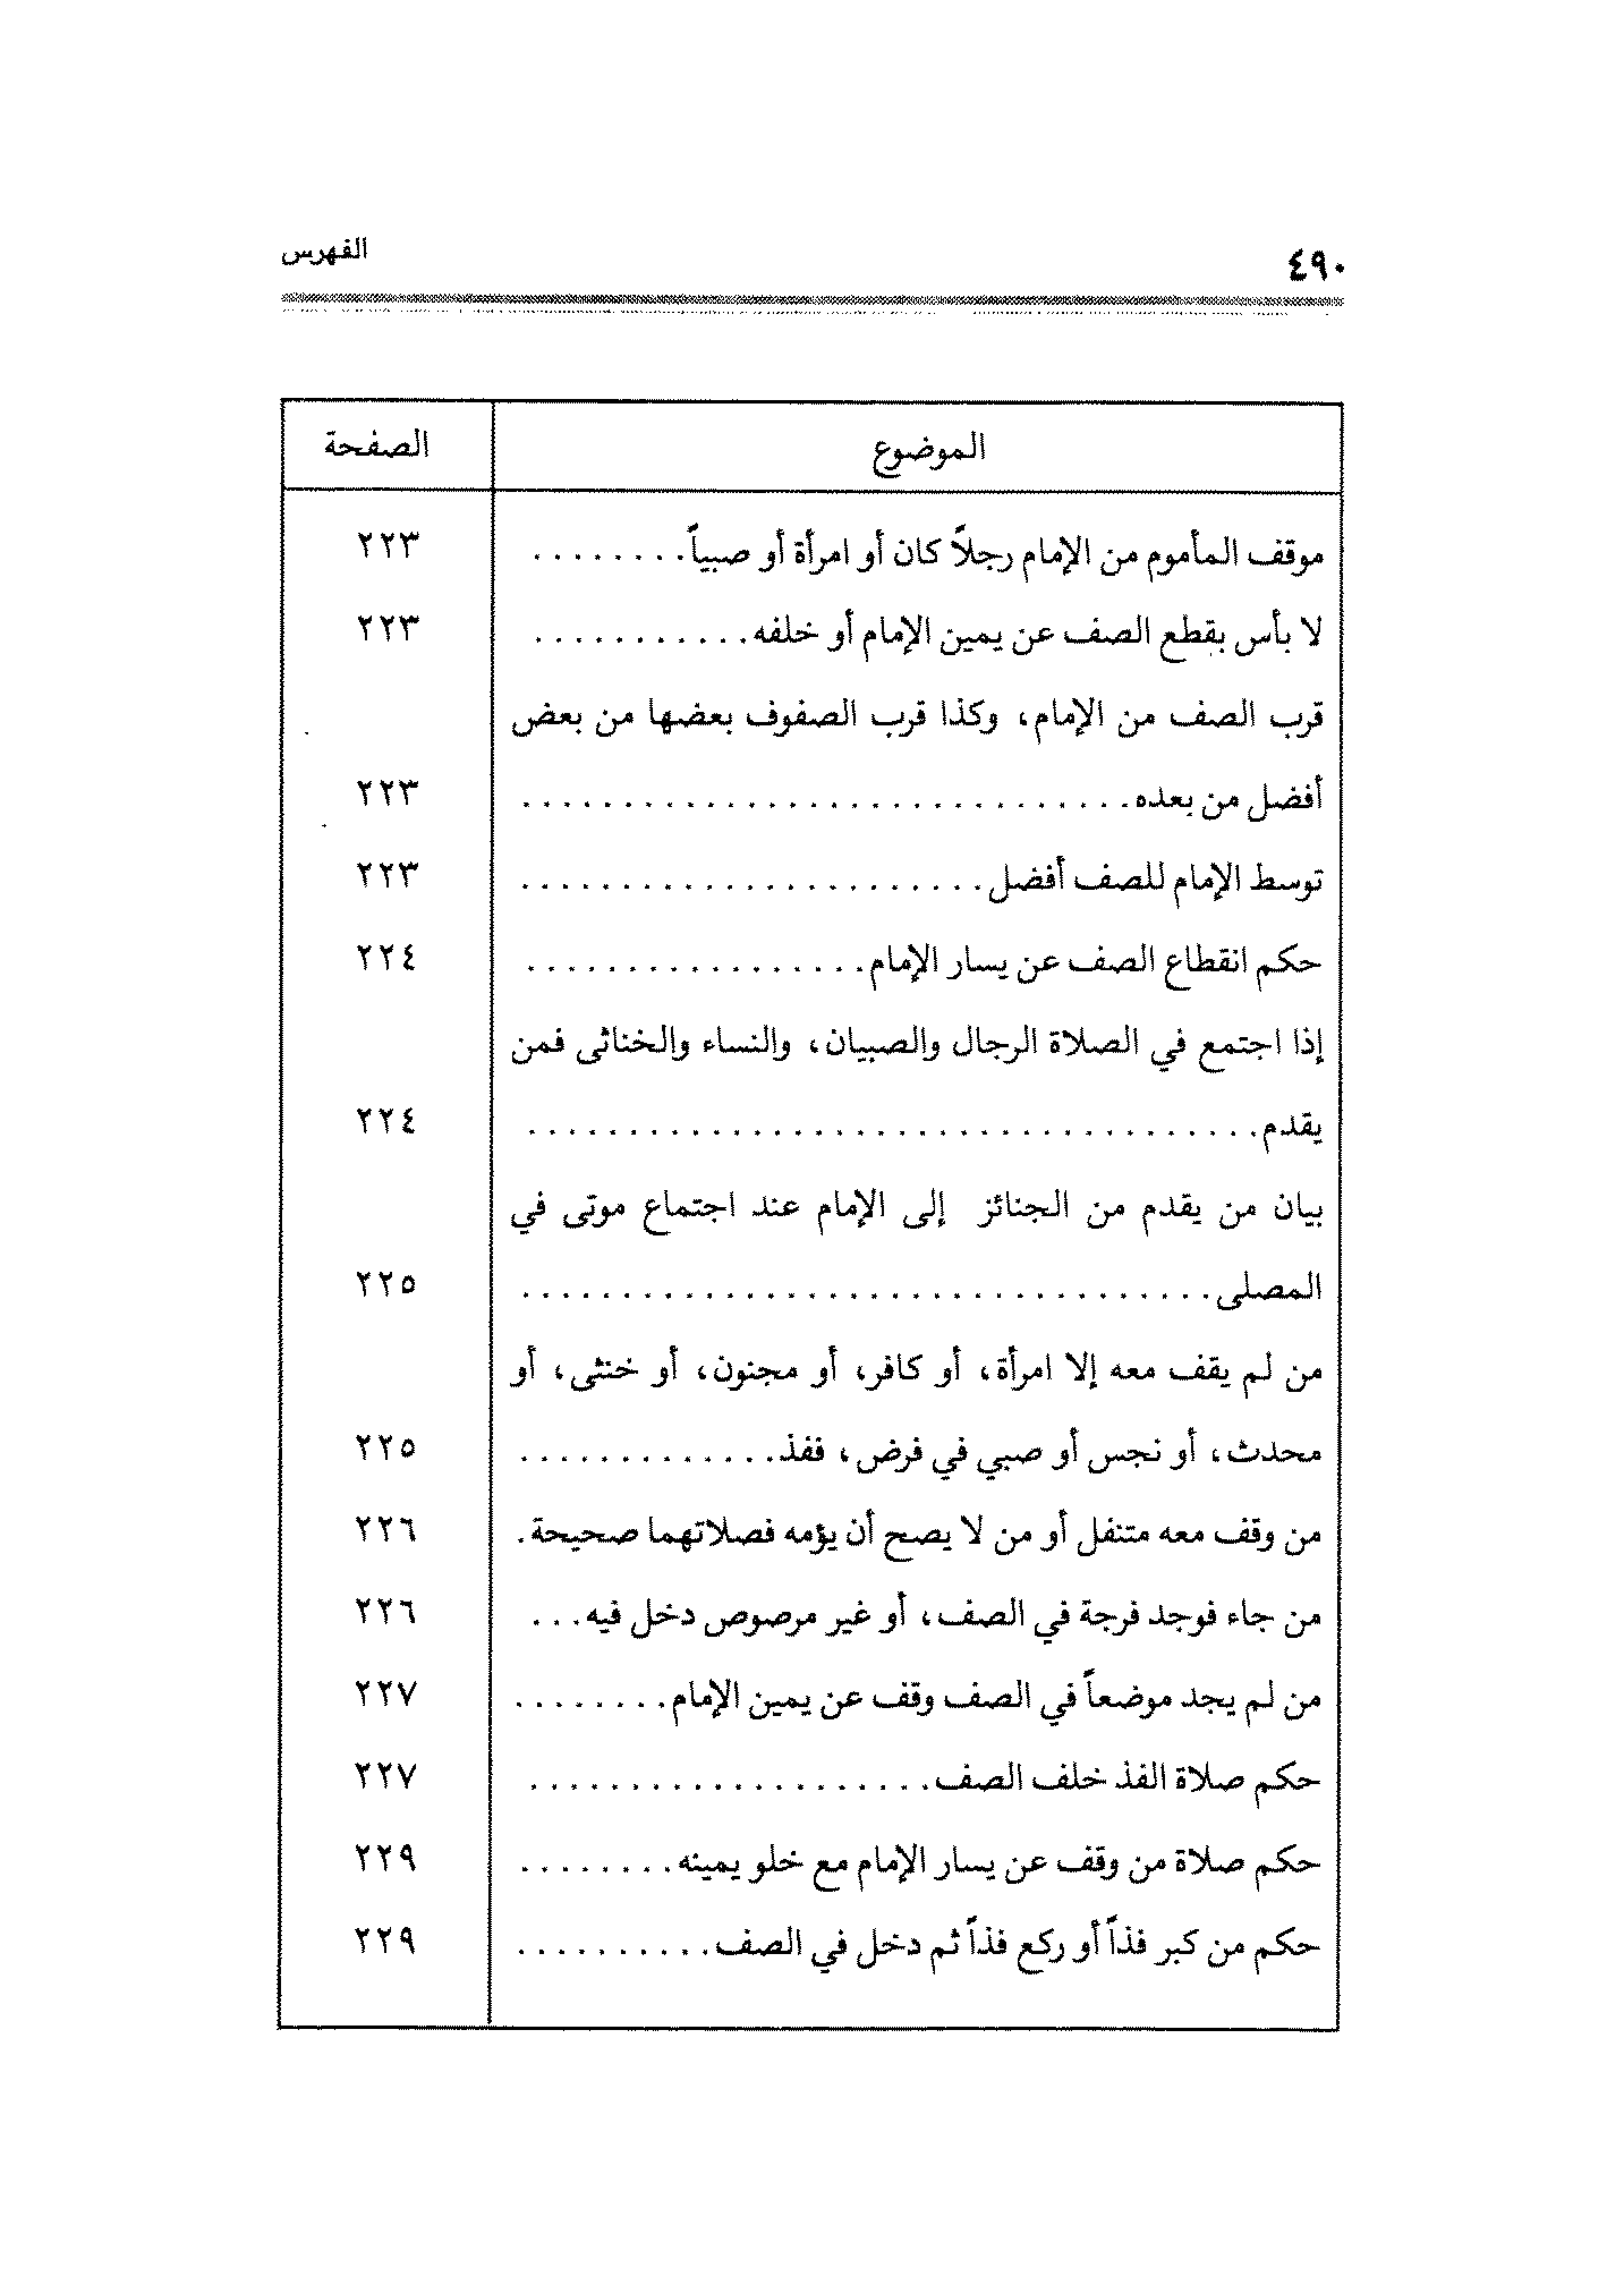 ٤٩٠ الفهرس
الموضوع الصفحة
موقف المأموم من الإمام رجلاً كان أو امرأة أو صبياً. . . . . . . . ٢٢٣
لا بأس بقطع الصف عن يمين الإمام أو خلفه. . . . . . . . . . . ٢٢٣
قرب الصف من الإمام، وكذا قرب الصفوف بعضها من بعض
أفضل من بعده. . . . . . . . . . . . . . . . . . . . . . . . . . . . . . ٢٢٣
توسط الإمام للصف أفضل. . . . . . . . . . . . . . . . . . . . . . . ٢٢٣
حكم انقطاع الصف عن يسار الإمام. . . . . . . . . . . . . . . . . ٢٢٤
إذا اجتمع في الصلاة الرجال والصبيان، والنساء والخناثى فمن
يقدم. . . . . . . . . . . . . . . . . . . . . . . . . . . . . . . . . . . . ٢٢٤
بيان من يقدم من الجنائز إلى الإمام عند اجتماع موتى في
المصلى. . . . . . . . . . . . . . . . . . . . . . . . . . . . . . . . . . ٢٢٥
من لم يقف معه إلا امرأة، أو كافر، أو مجنون، أو خنثى، أو
محدث، أو نجس أو صبي في فرض، ففذ. . . . . . . . . . . . . ٢٢٥
من وقف معه متنفل أو من لا يصح أن يؤمه فصلاتهما صحيحة. ٢٢٦
من جاء فوجد فرجة في الصف، أو غير مرصوص دخل فيه. . . ٢٢٦
من لم يجد موضعاً في الصف وقف عن يمين الإمام. . . . . . . . ٢٢٧
حكم صلاة الفذ خلف الصف. . . . . . . . . . . . . . . . . . . . ٢٢٧
حكم صلاة من وقف عن يسار الإمام مع خلو يمينه. . . . . . . . ٢٢٩
حكم من كبر فذاً أو ركع فذاً ثم دخل في الصف. . . . . . . . . . ٢٢٩